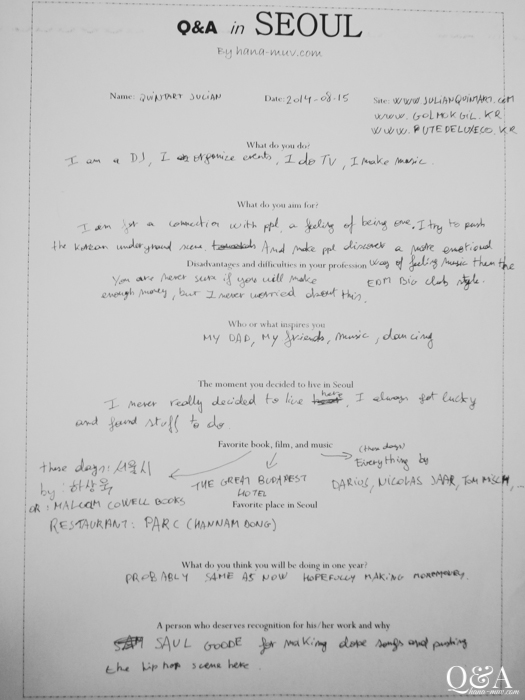 Q&A in SEOUL
By hana-muv.com
Name: QUINTART JULIAN Date: 2014-08-15 Site: WWW.JULIANQUINTART.COM
WWW.GOLMOKGIL.KR
WWW.PUTEDELUXECO.KR
What do you do?
I am a DJ, I organize events, I do TV, I make music.
What do you aim for?
I am for a connection with ppl, a feeling of being one. I try to push
the Korean underground scene, And make ppl discover a more emotional
Disadvantages and difficulties in your profession way of feeling music then the
You are never sure if you will make EDM BIG club style.
enough money, but I never worried about this.
Who or what inspires you
MY DAD, MY friends, music, dancing
The moment you decided to live in Seoul
I never really decided to live here, I always got lucky
and found stuff to do.
Favorite book, film, and music
these days: 서울시 (these days)
by: 하상욱 THE GREAT BUDAPEST Everything by
OR: MALCOLM COWELL BOOKS HOTEL DARIUS, NICOLAS JAAR, TOM MISCH, ...
Favorite place in Seoul
RESTAURANT: PARC (HANNAM DONG)
What do you think you will be doing in one year?
PROBABLY SAME AS NOW HOPEFULLY MAKING
A person who deserves recognition for his/her work and why
SAUL GOODE for making dope songs and pushing
the hip hop scene here.
Q&A
hana-muv.com